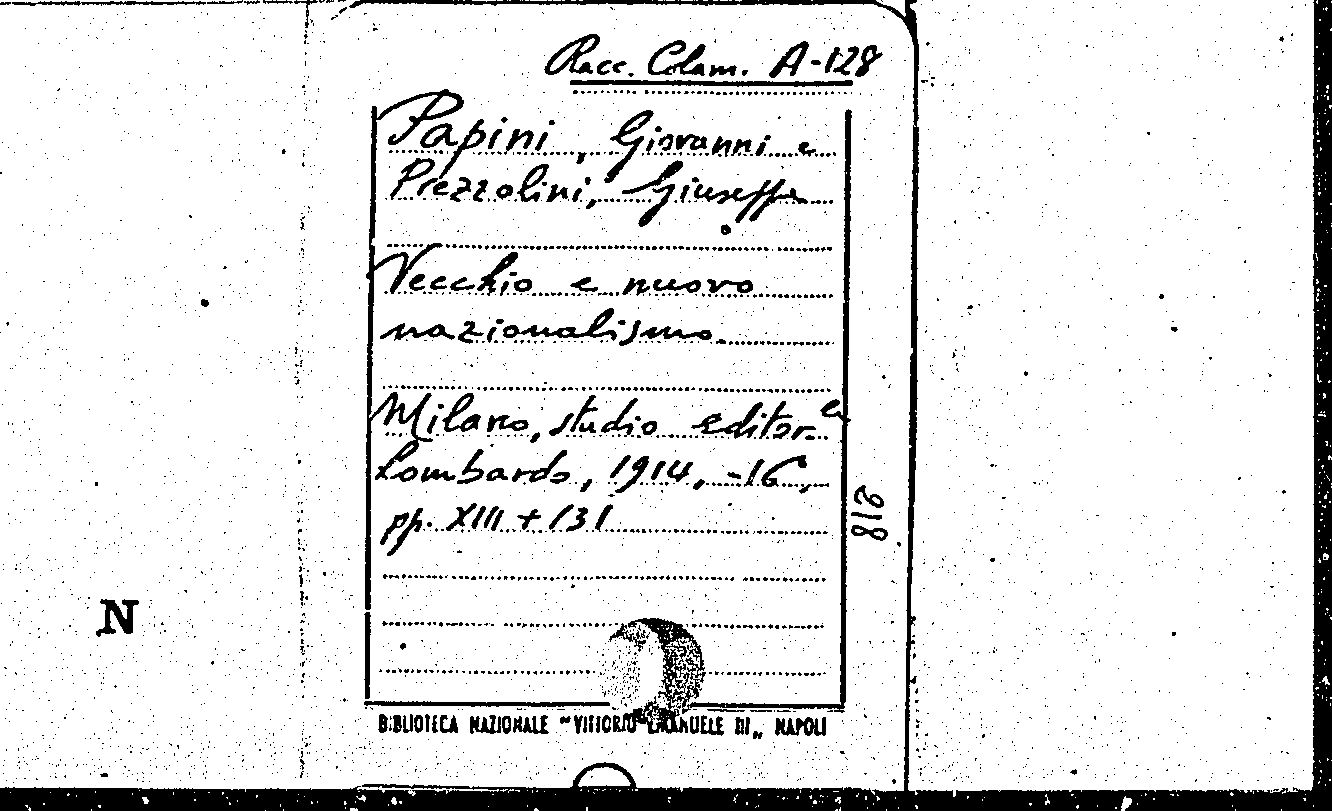 Racc. Colam. A-128
Papini, Giovanni e
Prezzolini, Giuseppe
Vecchio e nuovo
nazionalismo.
Milano, studio editor.le
Lombardo, 1914, -16,
pp. XIII + 131
218
N
BIBLIOTECA NAZIONALE "VITTORIO EMANUELE III„ NAPOLI